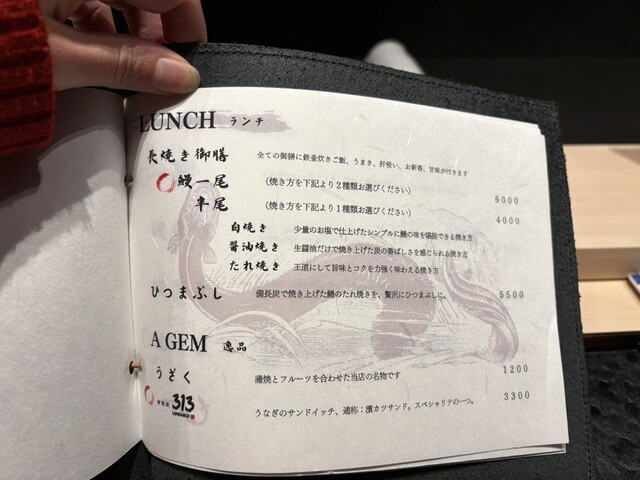 LUNCH ランチ
長焼き御膳 全ての御膳に鉄釜炊きご飯、うまき、肝吸い、お新香、甘味が付きます
鰻一尾 (焼き方を下記より2種類お選びください) 6000
半尾 (焼き方を下記より1種類お選びください) 4000
白焼き 少量のお塩で仕上げたシンプルに鰻の味を堪能できる焼き方
醤油焼き 生醤油だけで焼き上げた炭の香ばしさを感じられる焼き方
たれ焼き 王道にして旨味とコクを力強く味わえる焼き方
ひつまぶし 備長炭で焼き上げた鰻のたれ焼きを、贅沢にひつまぶしに。 5500
A GEM 逸品
うざく 蒲焼とフルーツを合わせた当店の名物です 1200
313 うなぎのサンドイッチ、通称：濱カツサンド。スペシャリテの一つ。 3300